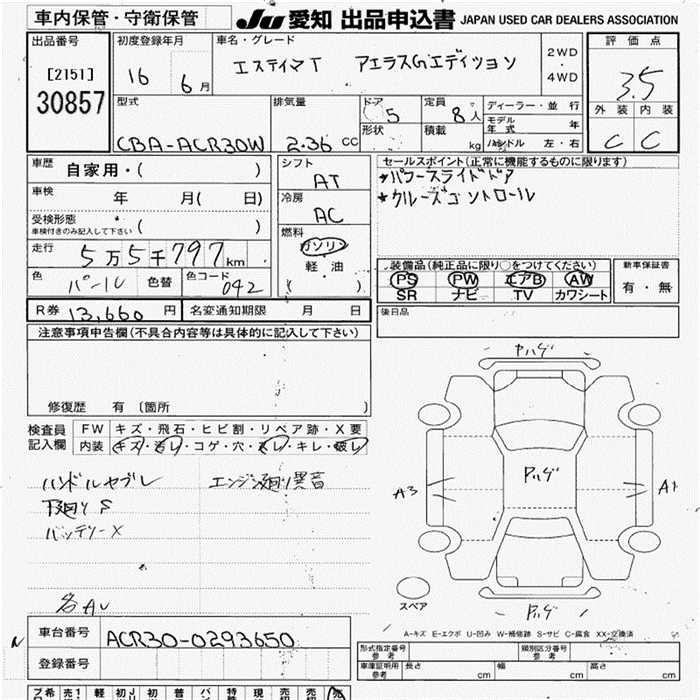 車内保管・守衛保管
JU 愛知 出品申込書 JAPAN USED CAR DEALERS ASSOCIATION
出品番号
[2151]
30857
初度登録年月
16 6月
車名・グレード
エスティマT アエラスGエディション
2WD
・
4WD
評価点
3.5
外装 内装
C C
型式
CBA-ACR30W
排気量
2.36 CC
ドア
5
形状
定員
8人
積載
kg
ディーラー・並行
モデル年式 年
ハンドル 左・右
車歴 自家用・( )
車検 年 月( 日)
受検形態
車検付きのみ記入して下さい ( )
走行 5万5千797km
色 パール 色替 色コード 042
シフト
AT
冷房
AC
燃料
ガソリン
軽・油
( )
セールスポイント(正常に機能するものに限ります)
★パワースライドドア
★クルーズコントロール
装備品(純正品に限り○をつけてください)
PS PW エアB AW
SR ナビ TV カワシート
新車保証書
有・無
R券 13,660円 名変通知期限 月 日
後日品
注意事項申告欄(不具合内容等は具体的に記入して下さい)
修復歴 有 〔箇所 〕
検査員記入欄
FW キズ・飛石・ヒビ割・リペア跡・X要
内装 キズ・汚レ・コゲ・穴・スレ・キレ・破レ
ハンドルヤブレ エンジン廻り異音
下廻りS
バッテリーX
各AU
ヤハゲ
Pハゲ
A3
A1
Pハゲ
スペア
A-キズ E-エクボ U-凹み W-補修跡 S-サビ C-腐食 XX-交換済
車台番号 ACR30-0293650
登録番号
型式指定番号 参考
類別区分番号 参考
車庫証明用 参考 長さ cm 幅 cm 高さ cm